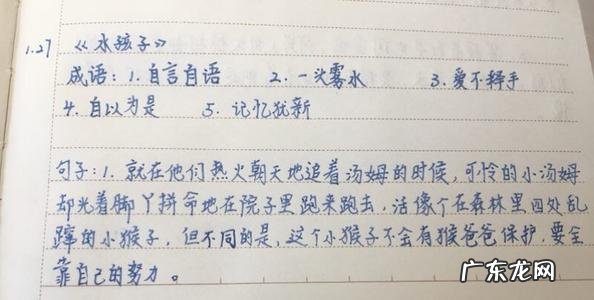 1.27 《水孩子》
成语：1.自言自语 2.一头雾水 3.爱不释手
4.自以为是 5.记忆犹新
句子：1.就在他们热火朝天地追着汤姆的时候，可怜的小汤姆
却光着脚丫拼命地在院子里跑来跑去，活像个在森林里四处乱
蹿的小猴子，但不同的是，这个小猴子不会有猴爸爸保护，要全
靠自己的努力。
广东龙网